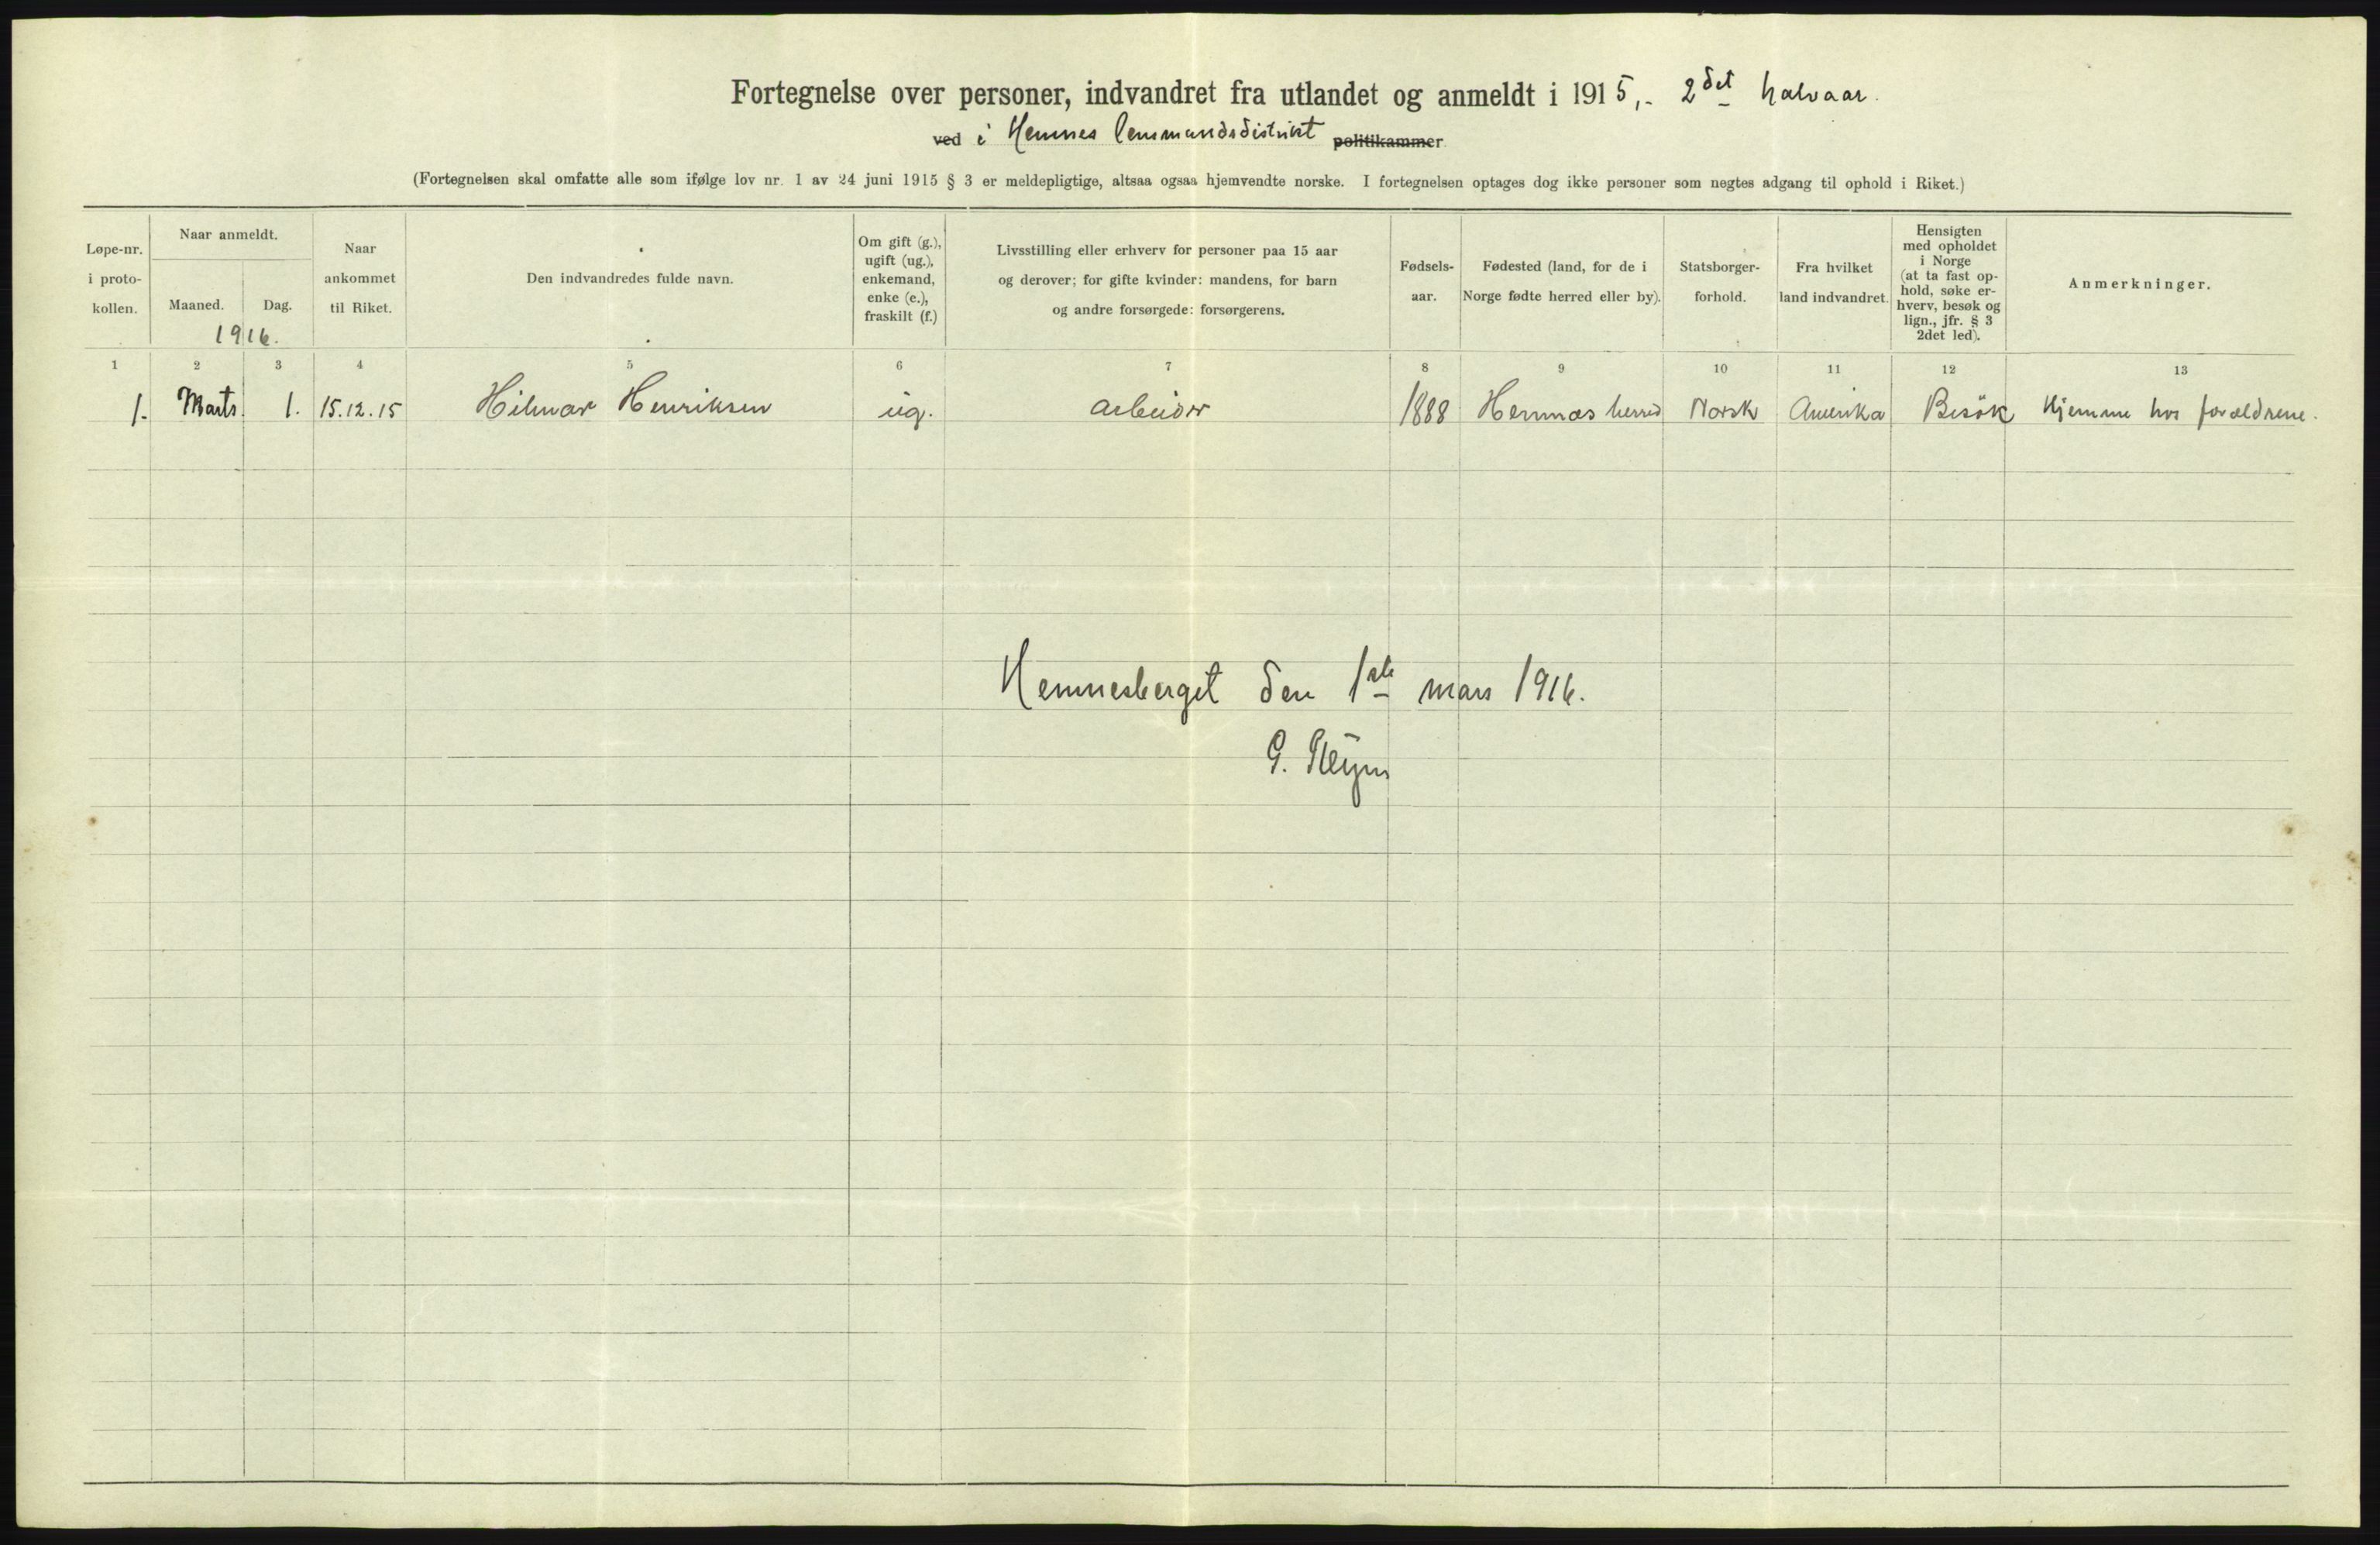 Fortegnelse over personer, indvandret fra utlandet og anmeldt i 1915,- 2det halvaar.
ved i Hemnes lensmandsdistrikt politikammer
(Fortegnelsen skal omfatte alle som ifølge lov nr. 1 av 24 juni 1915 § 3 er meldepligtige, altsaa ogsaa hjemvendte norske. I fortegnelsen optages dog ikke personer som negtes adgang til ophold i Riket.)
Løpe-nr.
i proto-
kollen.
Naar anmeldt.
Maaned.
Dag.
1916.
Naar
ankommet
til Riket.
Den indvandredes fulde navn.
Om gift (g.),
ugift (ug.),
enkemand,
enke (e.),
fraskilt (f.)
Livsstilling eller erhverv for personer paa 15 aar
og derover; for gifte kvinder: mandens, for barn
og andre forsørgede: forsørgerens.
Fødsels-
aar.
Fødested (land, for de i
Norge fødte herred eller by).
Statsborger-
forhold.
Fra hvilket
land indvandret.
Hensigten
med opholdet
i Norge
(at ta fast op-
hold, søke er-
hverv, besøk og
lign., jfr. § 3
2det led).
Anmerkninger.
1 2 3 4 5 6 7 8 9 10 11 12 13
1. Marts 1. 15.12.15 Hilmar Henriksen ug. arbeider 1888 Hemnæs herred Norsk Amerika Besök Hjemme hos forældrene.
Hemnesberget den 1ste mars 1916.
G.